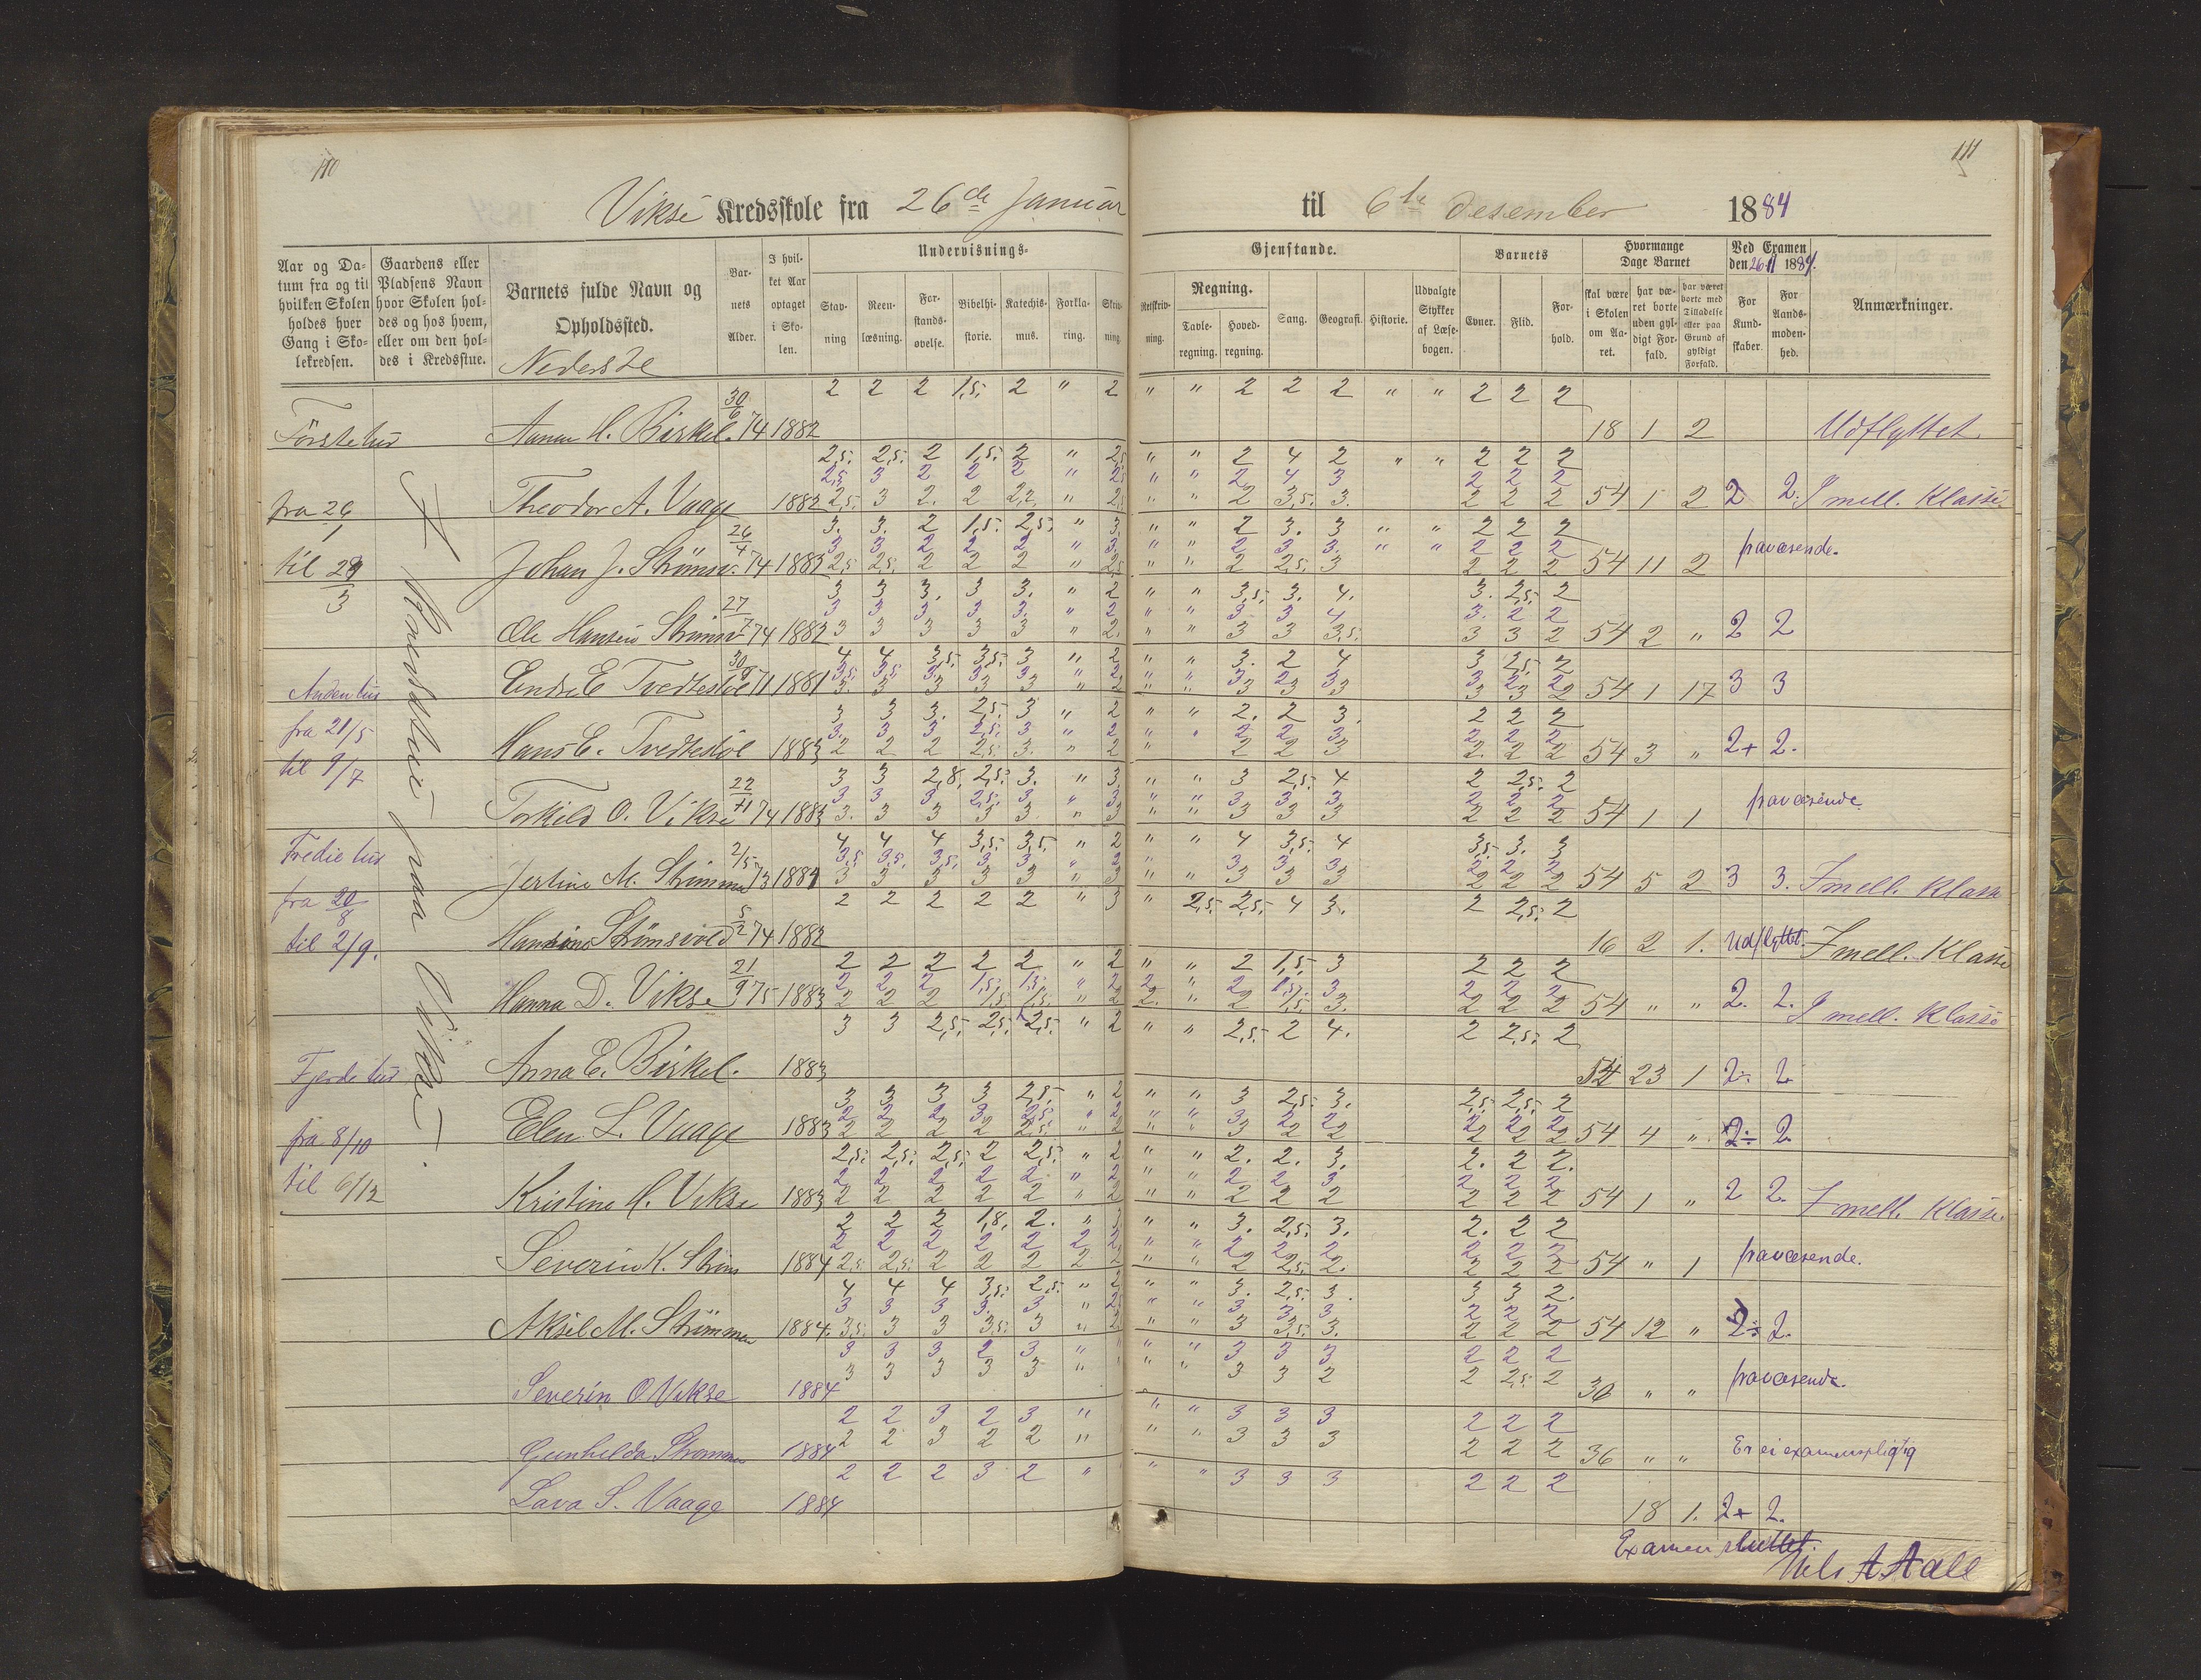 110
111
Vikse Kredsskole fra 26de Januar til 6te Desember 1884
Aar og Datum fra og til hvilken Skolen holdes hver Gang i Skolekredsen.
Gaardens eller Pladsens Navn hvor Skolen holdes og hos hvem, eller om den holdes i Kredsstue.
Barnets fulde Navn og Opholdssted.
Nederste
Barnets Alder.
I hvilket Aar optaget i Skolen.
Undervisnings-
Stavning
Reenlæsning.
Forstandsøvelse.
Bibelhistorie.
Katechismus.
Forklaring.
Skrivning.
Gjenstande.
Retskrivning.
Regning.
Tavleregning.
Hovedregning.
Sang.
Geografi.
Historie.
Udvalgte Stykker af Læsebogen.
Barnets
Evner.
Flid.
Forhold.
Hvormange Dage Barnet
skal være i Skolen om Aaret.
har været borte uden gyldigt Forfald.
har været borte med Tilladelse eller paa Grund af gyldigt Forfald.
Ved Examen den 26/11 1884.
For Kundskaber.
For Aandsmodenhed.
Anmærkninger.
2 2 2 1,5. 2 " 2 " " 2 2 2 " " 2 2 2
Første tur Anna H. Birkel. 30/6 74 1882 18 1 2 Udflyttet
2,5. 2,5. 2 1,5. 2 " 2,5 " " 2 4 2 " " 2 2 2
2,5 3 2 2 2 " 2,5 " " 2 4 3 2 2 2
fra 26/1 Theodor A. Vaage 1882 2,5. 3 2. 2 2,2 " 2 " " 2 3,5. 3. 2 2 2 54 1 2 2 2. I mell. Klasse
3. 3. 2 1,5. 2,5. " 3 " " 2 3. 3 " " 2 2 2
3 3 2 2 2 " 3. " " 2 3 3. " " 2 2 2
til 29/3 Johan J. Strømsv. 26/4 74 1882 2,5 2,5. 2 2 2 " 2,5 " " 2 2,5. 3 2 2 2 54 11 2 fraværende.
3 3 3. 3 3. " 2 " " 3,5. 3. 4. 3. 2,5. 2
3 3 3 3 3. " 2 " " 3 3 4 3. 2 2
Ole Hansen Strømsv 27/7 74 1882 3 3 3 3 3 " 2. " " 3 3 3,5. 3 3 2 54 2 " 2 2
4 4 3,5. 3,5. 3 " 2 " " 3. 2 4 3 2,5. 2
3,5 3,5. 3. 3 3 " 2 " " 3 2 3 3 2 2
Anden tur Endre E Tvedtesløl 30/9 71 1881 3. 3 3 3 3 " 2 " " 3 3 3 3 3 2 54 1 17 3 3
3 3 3. 2,5. 3 " 2 " " 2. 2 3. 2 2 2
3. 3 3 2,5. 3 " 2 " " 2 2 3 2 2 2
fra 21/5 Hans E. Tvedtesløl 1883 2 2 2 2,5. 3. " 2 " 2 2 3 2. 2 2 54 3 " 2+ 2.
til 9/7
3 3 2,8. 2,5. 3. " 3. " " 3 2,5. 4 2 2,5. 2
3 3 3 2,5. 3 " 3. " " 3 3 3 2 2 2
Torkild O. Vikse 22/11 74 1883 3. 3 3 3 3. " 3 " " 3 3 3 2 2 2 54 1 1 fraværende.
4 4 4 3,5. 3,5. " 2 " " 4 3,5. 4 3,5. 3. 3
Tredie tur 3,5 3,5. 3,5. 3 3 " 3 " 3 3 3 2 2 2
Jertine M. Strømme 2/5 73 1881 3 3 3 3 3 " 3 " " 3 3 3 2 2 2 54 5 2 3 3. I mell. Klasse
fra 20/8 2 2 2 2 2 " 3 " 2,5. 2,5. 4 3. 2 2,5. 2
til 2/9. Hansine Strømsvold 5/2 74 1882 16 2 1. Udflyttet. I mell. Klasse
2 2 2 2 2 " 2 " " 2 1,5. 3 2 2 2
2 2 2 1,5. 1,5. " 2 2 " 2 1,5. 3 2 2 2
Hanna D. Vikse 21/9 75 1883 2 2 2 1,5 1,5. " 2 2. " 2 1,5. 3. 2 2 2 54 " " 2. 2. I mell. Klasse
3 3 2,5. 2,5. 2,5. " 2 " " 2,5. 2 4. 2 2,5. 2
Fjerde tur Anna E. Birkel. 1883 54 23 1 2÷ 2
3 3 3 3 2,5. " 2 " " 3 2,5. 3. 2,5. 2,5. 2
2 2 2 3 2,5. " 2 " " 3 2 2 2 2 2
fra 8/10 Elen L. Vaage 1883 2 2 2 2 2,5. " 2 " " 3 2 2 2 2 2 54 4 " 2÷ 2
2,5. 2,5. 2,5. 2 2,5. " 2 " " 2. 2. 3. 2. 2 2.
2 2 2 2 2. " 2 " " 2 2 3 2 2 2
til 6/12 Kristine H. Vikse 1883 2 2 2 2 2 " 2 " " 2 2 2 2 2 2 54 1 " 2 2. I mell. Klasse.
2 2 2 1,8. 2. " 3. " " 3. 2,5. 3. 2. 2 2
2 2 2 2 2 2 2 " " 2 2 2 2 2 2
Severin K. Strøms 1884 2,5. 2,5. 2 2 2 2 2 " " 2 2,5. 2. 2 2 2 54 " 1 fraværende.
4 4 4 3,5. 2,5. " 2 " " 3. 2,5. 3. 3 3 2.
3 3 3 3. 3 " 2,5 " " 3 3 3 2 2 2
Aksel M. Strømmen 1884. 3,5. 3 3 3,5. 3 " 2 " " 3 3,5. 3. 2 2 2 54 12 " 2÷ 2.
3 3 3 2 3 " " " " 3 3 3 2 2 2
3 3 3 3 3 " " " 3 3 2 2 2,5. 2
Severin O Vikse 1884 36 " " fraværende.
2 2 3 2 3 " " " 3 3 3 2 2 2
Gunhilda Strømmen 1884 2 2 3 2 2 " " " 3 3 3 2 2 2 36 " " Er ei examenspligtig
2 2 2 3 2 " " " 3 3 3 2 2 2
Lava S. Vaage 1884 18 1. 2+ 2.
Examen sluttet.
Nils A Aall
paa Vikse.